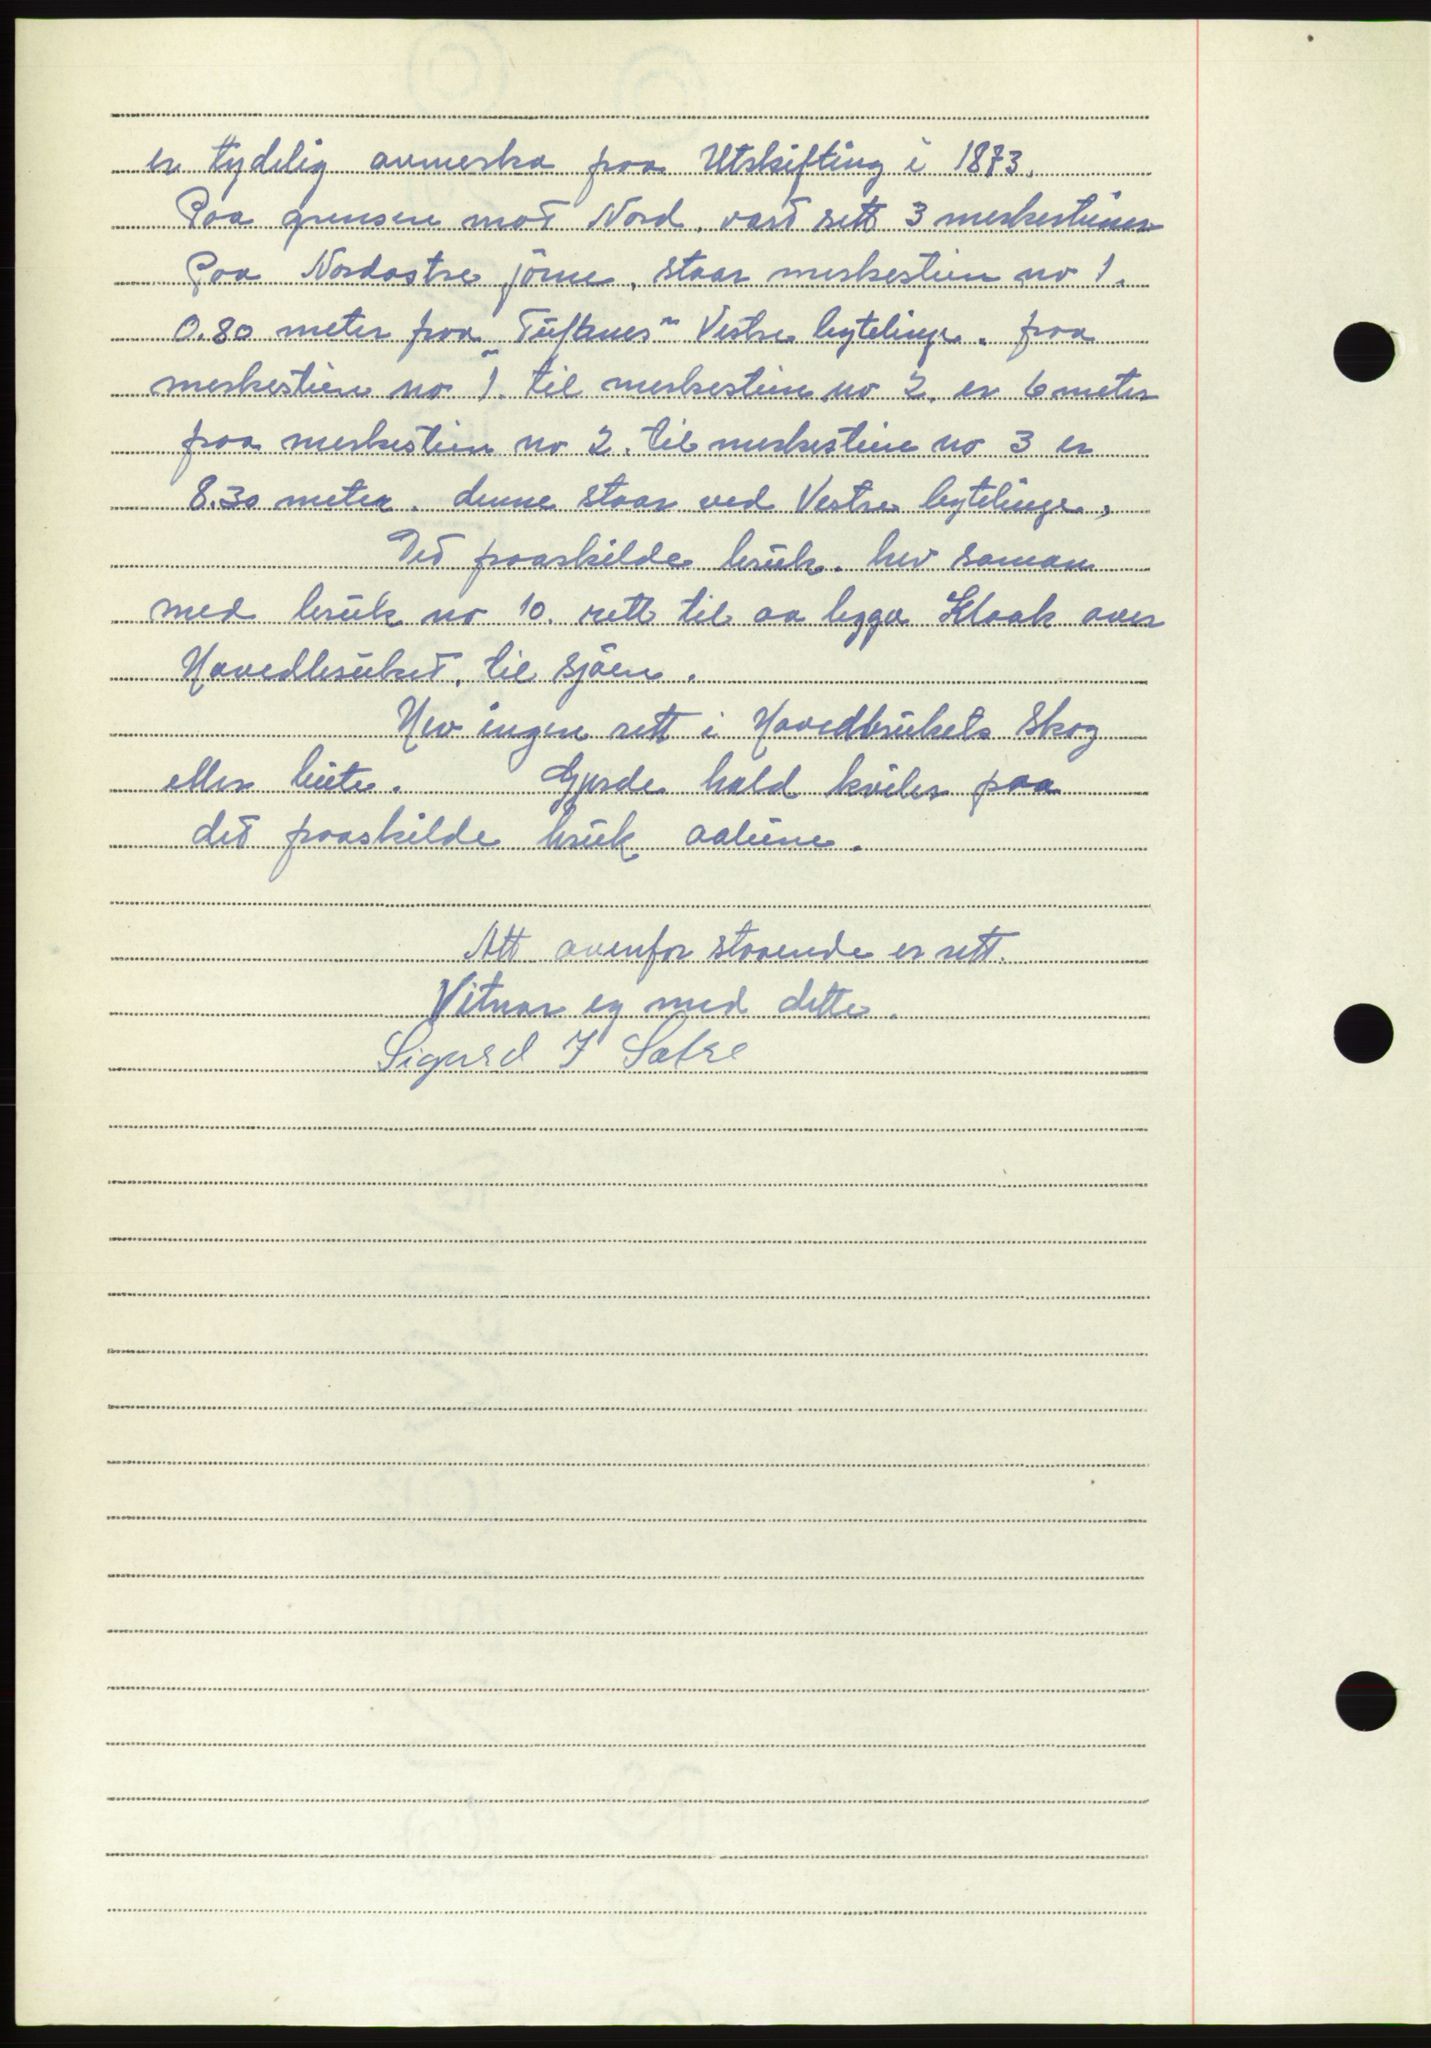 er tydelig avmerka paa Utskifting i 1873.
Paa grensen mot Nord. vart sett 3 merkesteiner
Paa Nordostre jörne. staar merkestein no 1.
0.80 meter fraa "Tuftnes" Vestre bytelinge. fraa
merkestein no 1. til merkestein no 2. er 6 meter
fraa merkestein no 2. til merkestein no 3 er
8.30 meter. denne staar ved Vestre bytelinge.
Det fraaskilde bruk. hev saman
med bruk no 10. rett til aa legga Kloak over
Hovedbruket. til sjöen.
Hev ingen rett i Hovedbrukets Skog
eller beite. Gjerde hald kviler paa
det fraaskilde bruk aaleine.
Att ovenfor staaende er rett.
Vitnar eg med dette.
Sigurd I Sætre